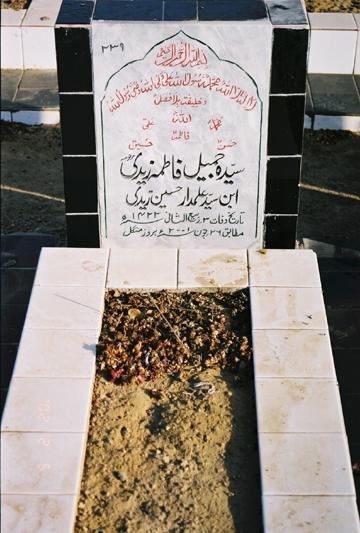 ۳۳۹
بسم الله الرحمن الرحیم
لا اله الا الله محمد رسول الله علی ولی الله وصی رسول الله
و خلیفته بلا فصل
الله
محمد علی
فاطمه
حسن حسین
سیده جمیل فاطمه زیدی
ابن سید علمدار حسین زیدی
تاریخ وفات ۳ ربیع الثانی ۱۴۲۲ ھ
مطابق ۲۶ جون ۲۰۰۱ء بروز منگل